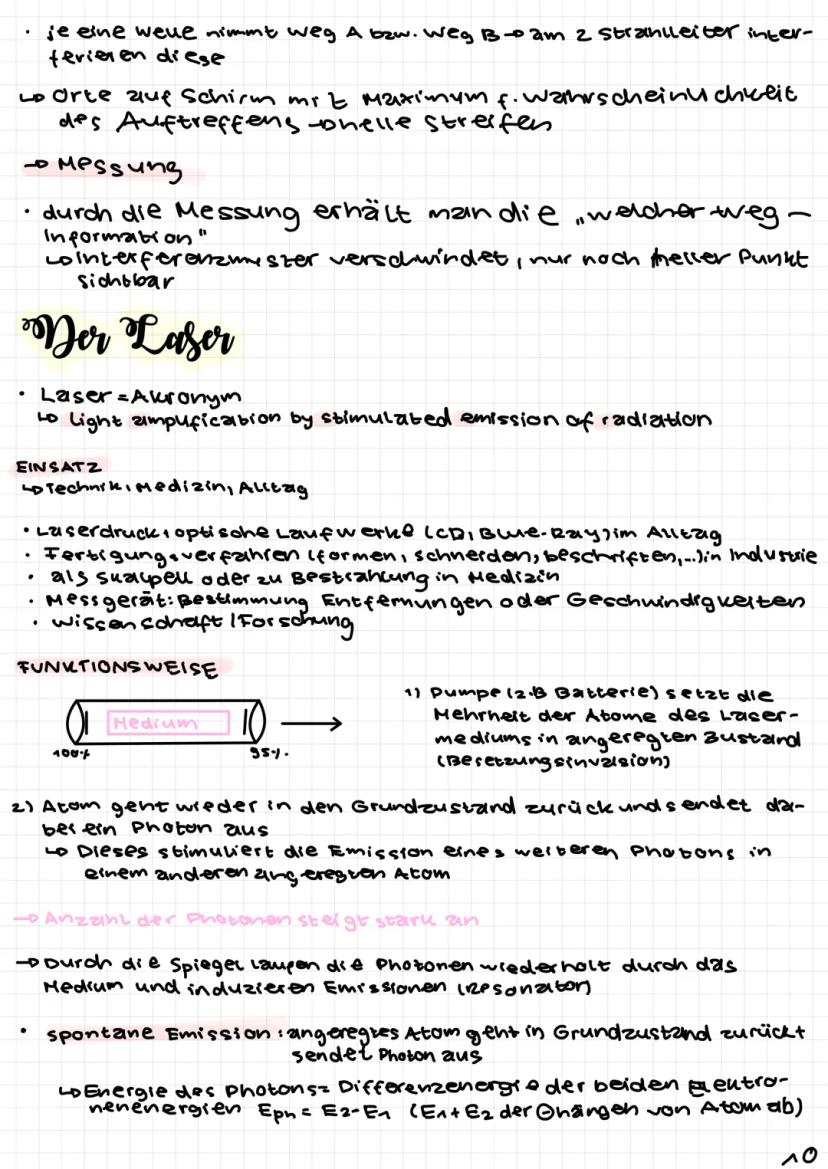 · je eine Welle nimmt Weg A bzw. Weg B → am 2 Strahlleiter inter-
ferieren diese
↳ Orte auf Schirm mit Maximum f. Wahrscheinlichkeit
des Auftreffens → helle Streifen
→ Messung
· durch die Messung erhält man die „welcher-Weg-
Information"
↳ Interferenzmuster verschwindet, nur noch heller Punkt
sichtbar
Der Laser
· Laser = Akronym
↳ light amplification by stimulated emission of radiation
EINSATZ
↳ Technik, Medizin, Alltag
· Laserdruck, optische Laufwerke (CD, Blue-Ray) im Alltag
· Fertigungsverfahren (formen, schneiden, beschriften,...) in Industrie
· als Skalpell oder zu Bestrahlung in Medizin
· Messgerät: Bestimmung Entfernungen oder Geschwindigkeiten
· Wissenschaft / Forschung
FUNKTIONSWEISE
Medium
100%
95%.
1) Pumpe (z.B Batterie) setzt die
Mehrheit der Atome des Laser-
mediums in angeregten Zustand
(Besetzungsinvasion)
2) Atom geht wieder in den Grundzustand zurück und sendet da-
bei ein Photon aus
↳ Dieses stimuliert die Emission eines weiteren Photons in
einem anderen angeregten Atom
→ Anzahl der Photonen steigt stark an
→ Durch die Spiegel laufen die Photonen wiederholt durch das
Medium und induzieren Emissionen (Resonator)
· spontane Emission: angeregtes Atom geht in Grundzustand zurück +
sendet Photon aus
↳ Energie des Photons = Differenzenergie der beiden Elektro-
nenenergien Eph = E2-E1 (E1 + E2 der Ohängen von Atom ab)
10